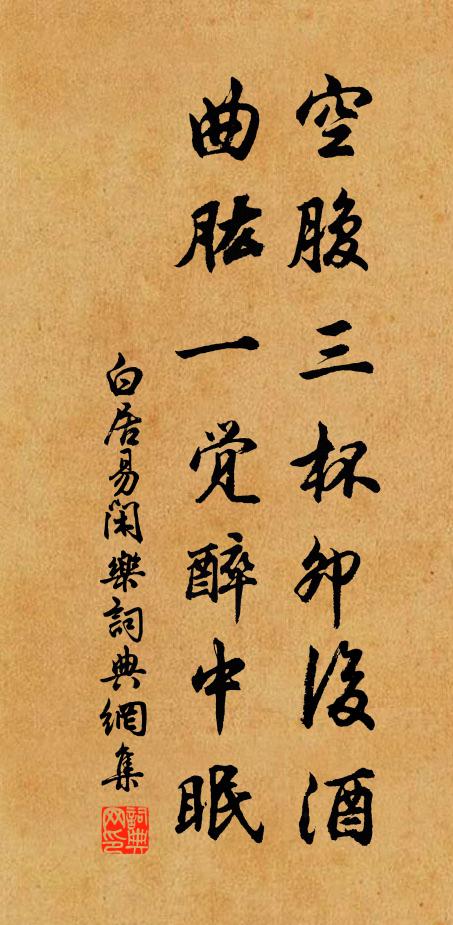 空腹三杯卯後酒
曲肱一覺醉中眠
白居易閑樂詞典網集
詞典网印